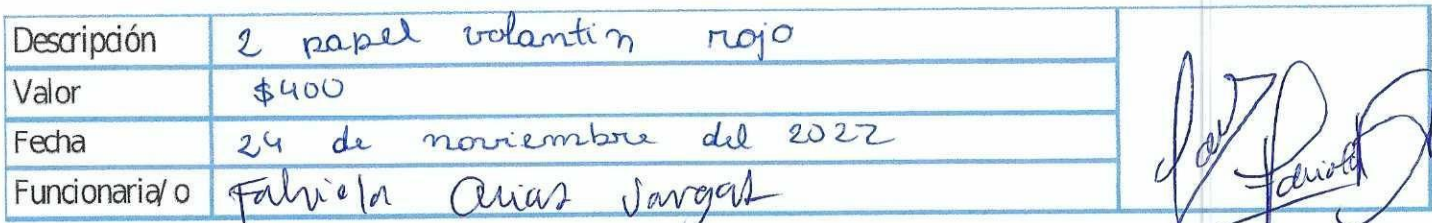 Descripción 2 papel volantin rojo
Valor $400
Fecha 24 de noviembre del 2022
Funcionaria/o Fabiola Arias Vargas